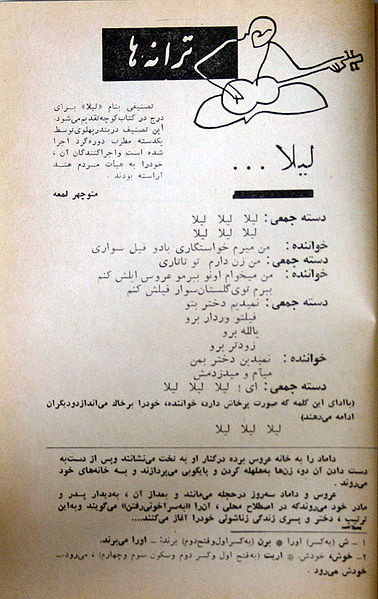 ترانه ها
تصنیفی بنام «لیلا» برای
درج در کتاب کوچه تقدیم می‌شود.
این تصنیف در بندر پهلوی توسط
یکدسته مطرب دوره‌گرد اجرا
شده است و اجراکنندگان آن،
خودرا به هیأت مردم هند
آراسته بودند.
منوچهر لمعه
لیلا ...
دسته جمعی: لیلا لیلا لیلا
لیلا لیلا لیلا
خواننده: من میرم خواستگاری بادو فیل سواری
دسته جمعی: من زن دارم تو تاتاری
خواننده: من میخوام اونو ببرمو عروس ایلش کنم
ببرم توی گلستان سوار فیلش کنم
دسته جمعی: نمیدیم دختر بتو
فیلتو وردار برو
یالله برو
زودتر برو
خواننده: نمیدین دختر بمن
میام و میدزدمش
دسته جمعی: ای! لیلا لیلا لیلا
(باادای این کلمه که صورت پرخاش دارد، خواننده، خودرا برخاك می‌اندازدودیگران
ادامه می‌دهند)
لیلا لیلا لیلا
داماد را به خانه عروس برده درکنار او به تخت می‌نشانند وپس از دست‌به
دست دادن آن دو، زن‌ها به‌هلهله کردن و پایکوبی می‌پردازند و به خانه‌های خود
می‌روند.
عروس و داماد سه‌روز درحجله می‌مانند و بعداز آن، به‌دیدار پدر و
مادر خود می‌روندکه در اصطلاح محلی، آن‌را «به‌سراخونی‌رفتن» می‌گویند وبه‌این
ترتیب، دختر و پسری زندگی زناشوئی خودرا آغاز می‌کنند....
۱ - ش (به‌کسر) اورا * برن (به‌کسراول‌وفتح‌دوم) برند: ــ اورا می‌برند.
۲ - خوش، خودش. * اریت (به‌فتح اول وکسر دوم وسکون سوم وچهارم)، می‌رود.ــ
خودش می‌رود.